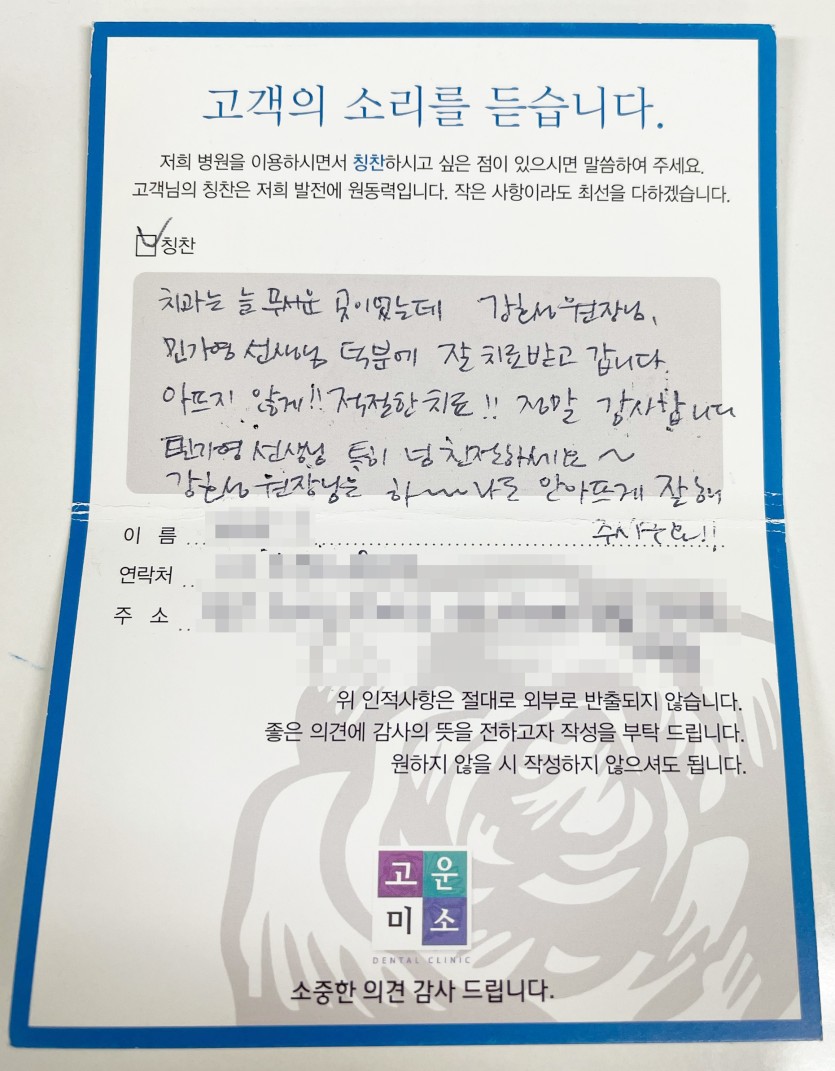 고객의 소리를 듣습니다.
저희 병원을 이용하시면서 칭찬하시고 싶은 점이 있으시면 말씀하여 주세요.
고객님의 칭찬은 저희 발전에 원동력입니다. 작은 사항이라도 최선을 다하겠습니다.
칭찬
치과는 늘 무서운 곳이었는데 원장님,
민가영 선생님 덕분에 잘 치료받고 갑니다.
아프지 않게!! 적절한 치료!! 정말 감사합니다
민가영 선생님 특히 넘 친절하세요~
원장님은 하~~ 나도 안아프게 잘해
주시구요!!
이 름
연락처
주 소
위 인적사항은 절대로 외부로 반출되지 않습니다.
좋은 의견에 감사의 뜻을 전하고자 작성을 부탁 드립니다.
원하지 않을 시 작성하지 않으셔도 됩니다.
고운
미소
DENTAL CLINIC
소중한 의견 감사 드립니다.